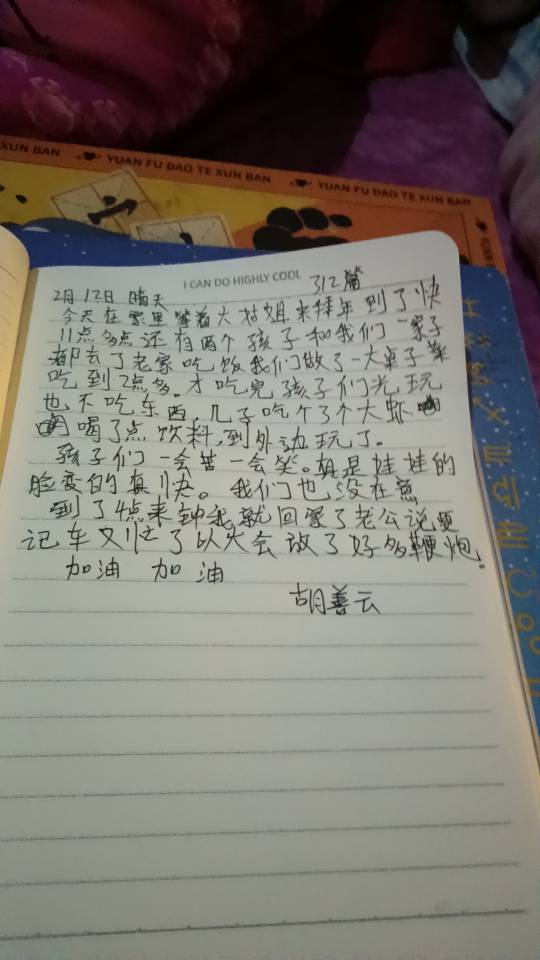 XUN BAN YUAN FU DAO TE XUN BAN YUAN FU DAO TE XUN BAN
I CAN DO HIGHLY COOL
2月12日 晴天 312篇
今天在家里等着大姑姐来拜年到了快
11点多点还有两个孩子和我们一家子
都去了老家吃饭我们做了一大桌子菜
吃到2点多。才吃完孩子们光玩
也不吃东西,儿子吃了3个大虾
喝了点饮料,到外边玩了。
孩子们一会苦一会笑。真是娃娃的
脸变的真快。我们也没在意
到了4点来钟我就回家了老公说
记车又忙了以大会放了好多鞭炮。
加油 加油
胡善云